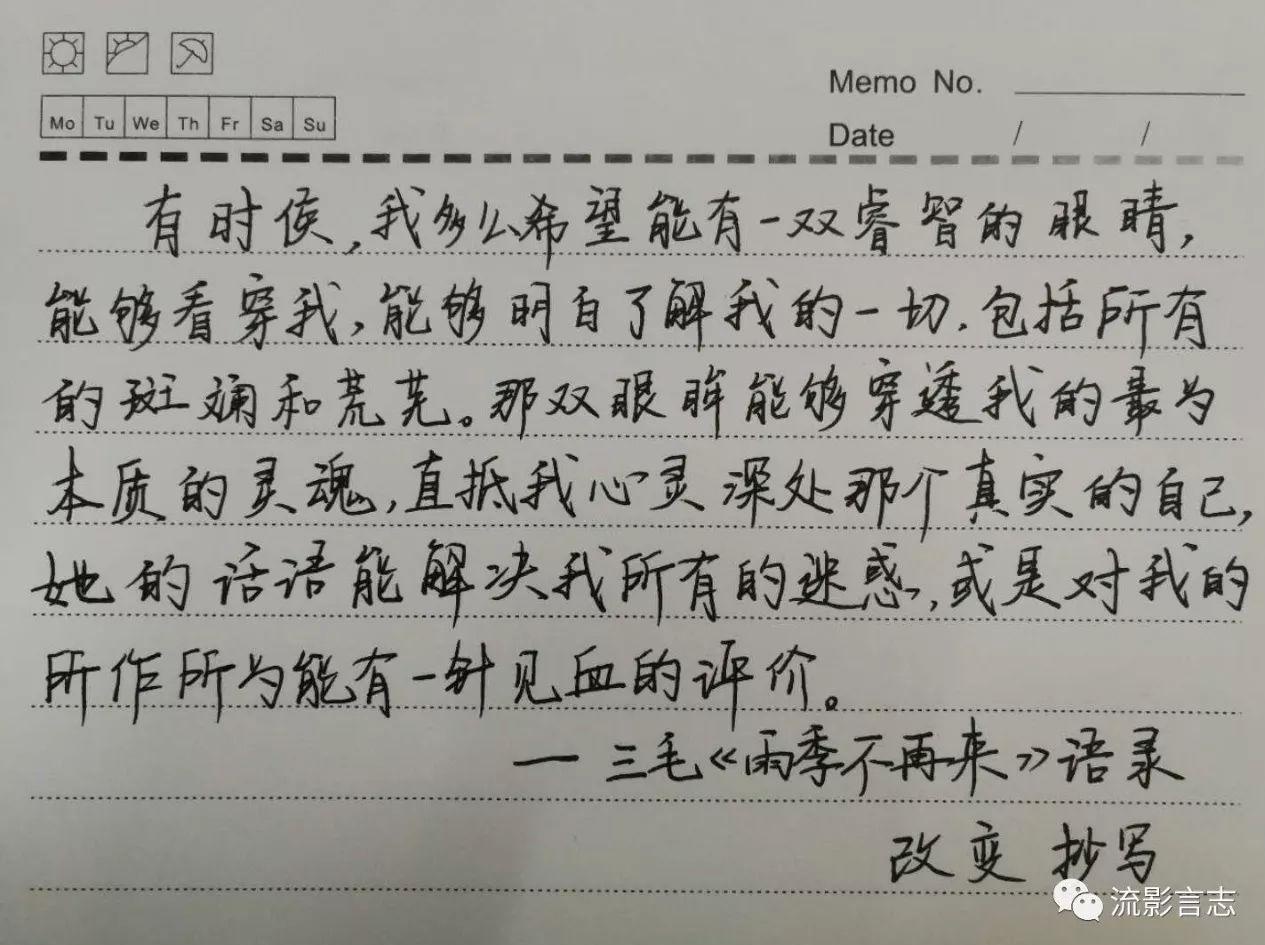 Memo No.
Mo Tu We Th Fr Sa Su
Date / /
有时候,我多么希望能有一双睿智的眼睛,
能够看穿我,能够明白了解我的一切.包括所有
的斑斓和荒芜。那双眼眸能够穿透我的最为
本质的灵魂,直抵我心灵深处那个真实的自己,
她的话语能解决我所有的迷惑,或是对我的
所作所为能有一针见血的评价。
一 三毛《雨季不再来》语录
改变 抄写
流影言志